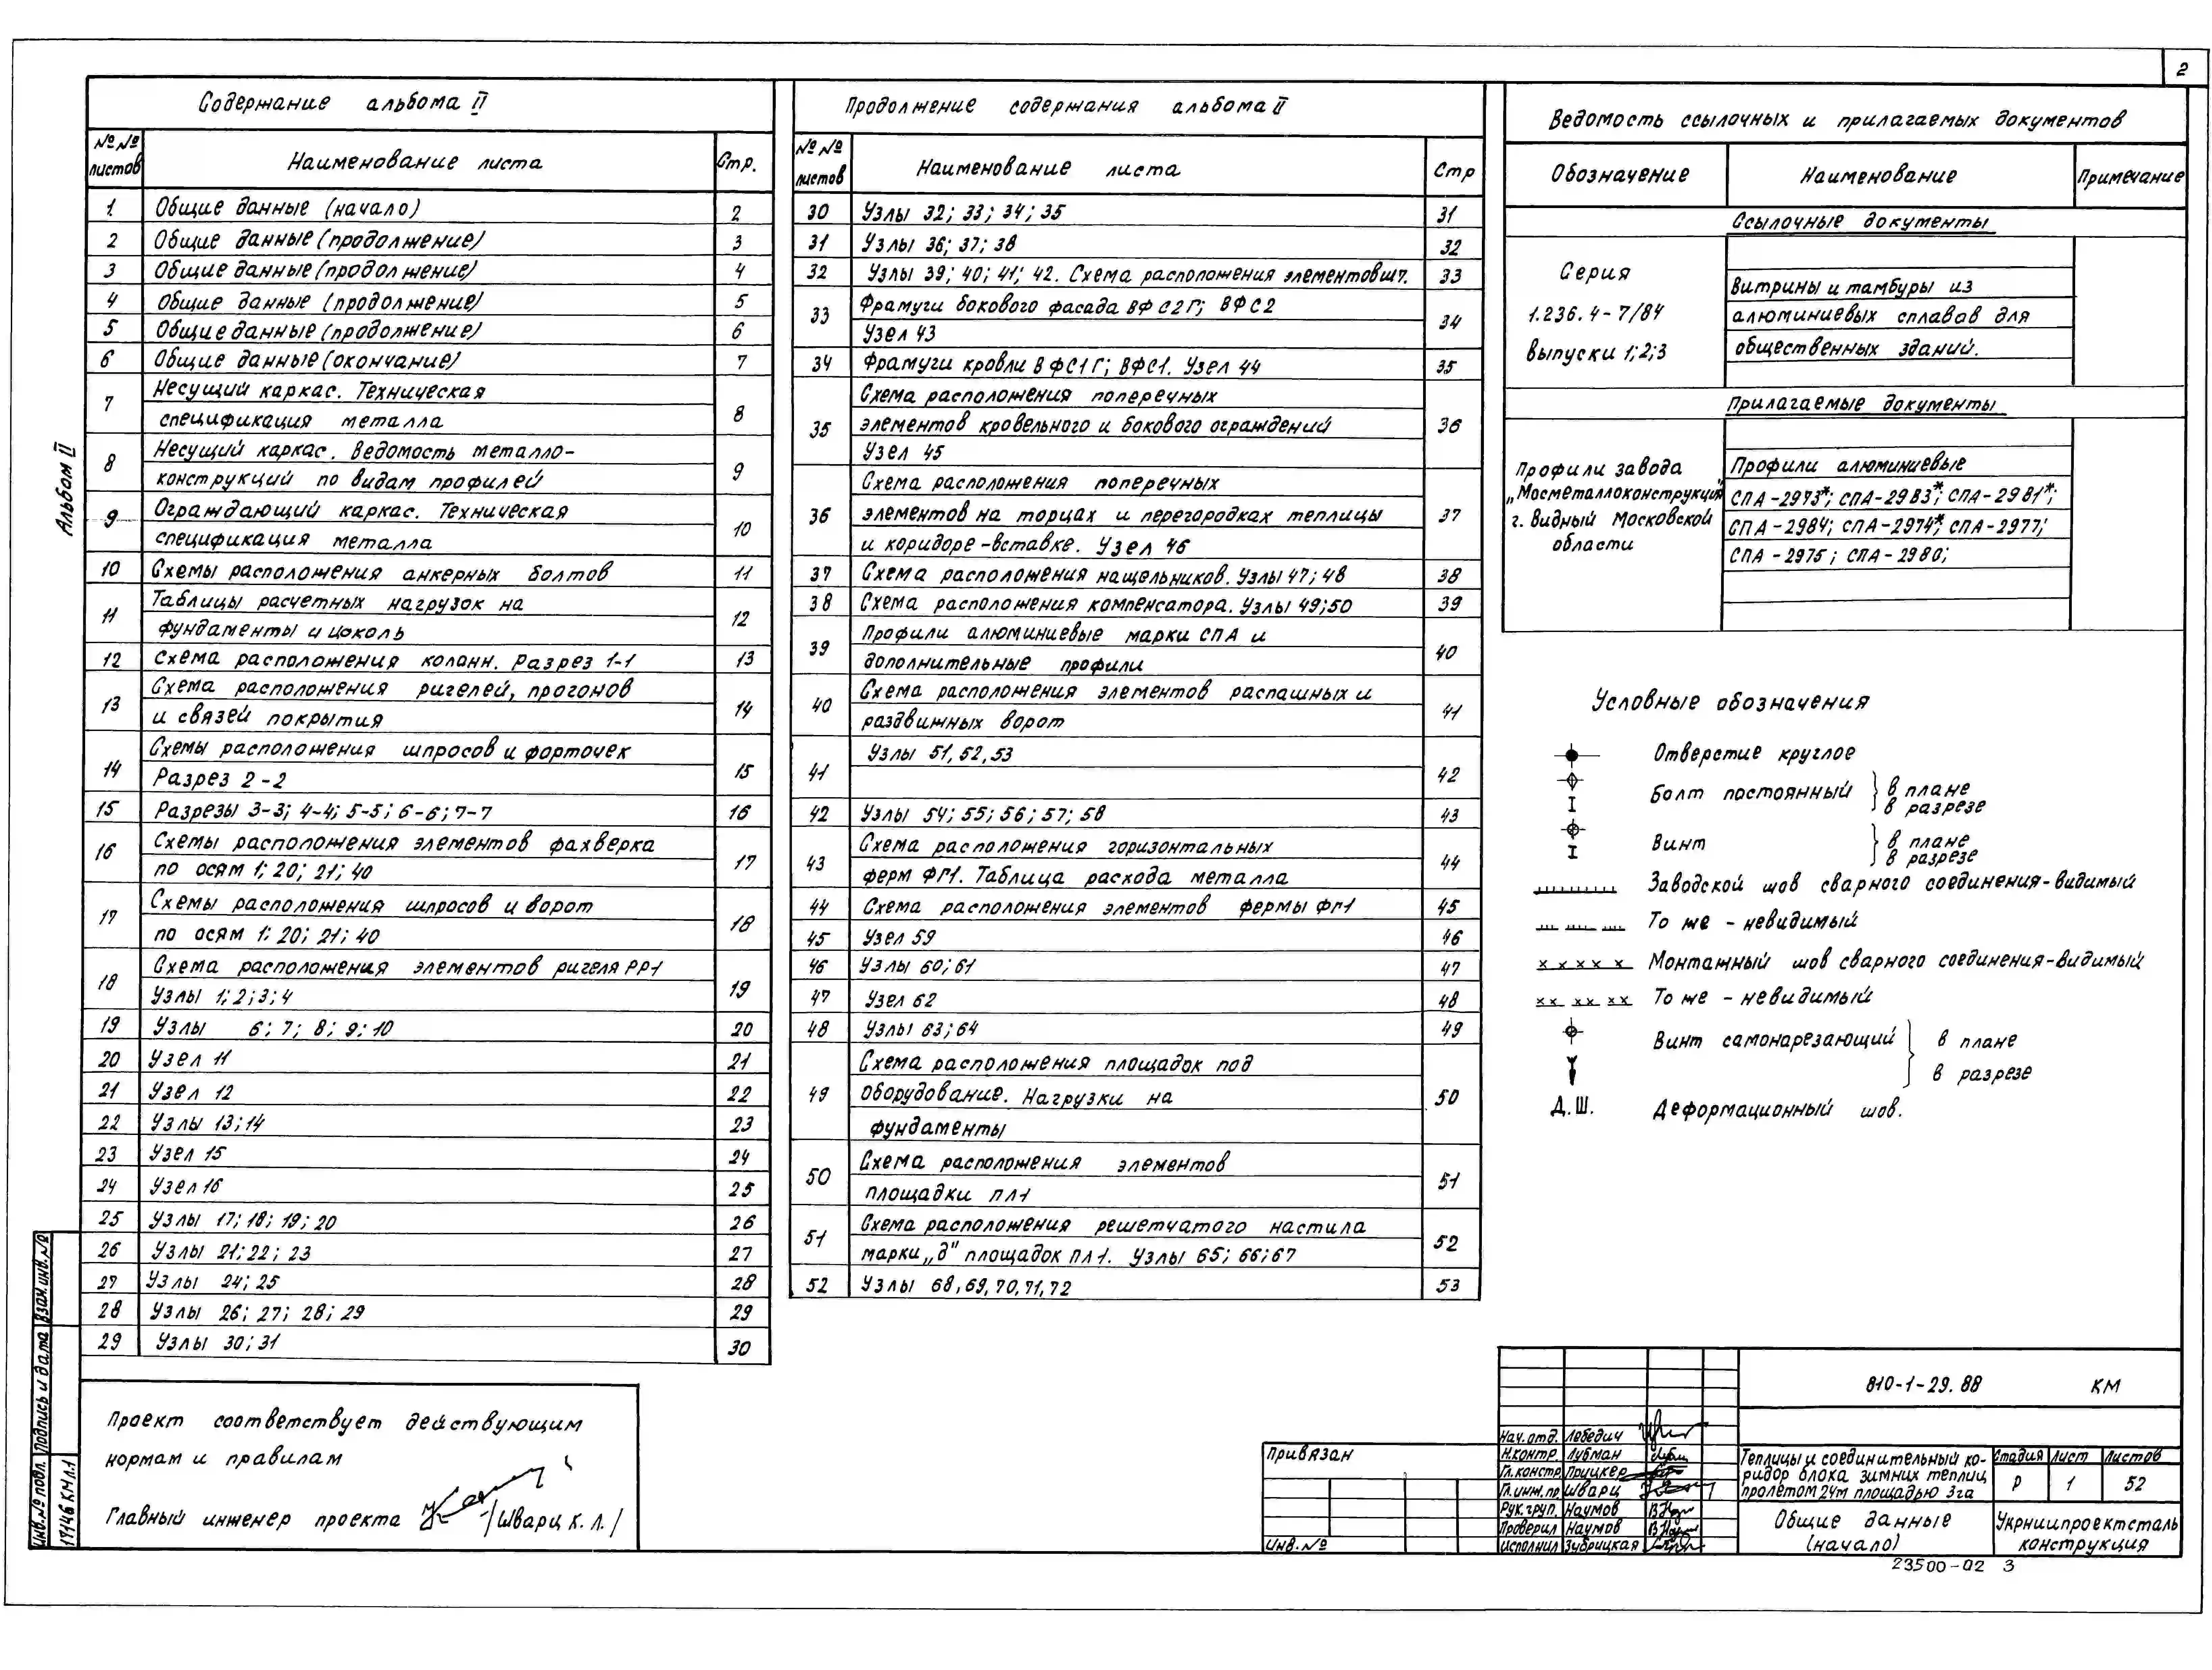 2
Альбом II
Содержание альбома II
№№ листов Наименование листа Стр.
1 Общие данные (начало) 2
2 Общие данные (продолжение) 3
3 Общие данные (продолжение) 4
4 Общие данные (продолжение) 5
5 Общие данные (продолжение) 6
6 Общие данные (окончание) 7
7 Несущий каркас. Техническая
спецификация металла 8
8 Несущий каркас. Ведомость металло-
конструкций по видам профилей 9
9 Ограждающий каркас. Техническая
спецификация металла 10
10 Схемы расположения анкерных болтов 11
11 Таблицы расчетных нагрузок на
фундаменты и цоколь 12
12 Схема расположения колонн. Разрез 1-1 13
13 Схема расположения ригелей, прогонов
и связей покрытия 14
14 Схемы расположения шпросов и форточек
Разрез 2-2 15
15 Разрезы 3-3; 4-4; 5-5; 6-6; 7-7 16
16 Схемы расположения элементов фахверка
по осям 1; 20; 21; 40 17
17 Схемы расположения шпросов и ворот
по осям 1; 20; 21; 40 18
18 Схема расположения элементов ригеля РР1
Узлы 1; 2; 3; 4 19
19 Узлы 6; 7; 8; 9; 10 20
20 Узел 11 21
21 Узел 12 22
22 Узлы 13; 14 23
23 Узел 15 24
24 Узел 16 25
25 Узлы 17; 18; 19; 20 26
26 Узлы 21; 22; 23 27
27 Узлы 24; 25 28
28 Узлы 26; 27; 28; 29 29
29 Узлы 30; 31 30
Продолжение содержания альбома II
№№ листов Наименование листа Стр
30 Узлы 32; 33; 34; 35 31
31 Узлы 36; 37; 38 32
32 Узлы 39; 40; 41; 42. Схема расположения элементов шт. 33
33 Фрамуги бокового фасада ВФС2Г; ВФС2
Узел 43 34
34 Фрамуги кровли ВФС1Г; ВФС1. Узел 44 35
35 Схема расположения поперечных
элементов кровельного и бокового ограждений
Узел 45 36
36 Схема расположения поперечных
элементов на торцах и перегородках теплицы
и коридоре-вставке. Узел 46 37
37 Схема расположения нащельников. Узлы 47; 48 38
38 Схема расположения компенсатора. Узлы 49; 50 39
39 Профили алюминиевые марки СПА и
дополнительные профили 40
40 Схема расположения элементов распашных и
раздвижных ворот 41
41 Узлы 51, 52, 53 42
42 Узлы 54; 55; 56; 57; 58 43
43 Схема расположения горизонтальных
ферм ФГ1. Таблица расхода металла 44
44 Схема расположения элементов фермы ФГ1 45
45 Узел 59 46
46 Узлы 60; 61 47
47 Узел 62 48
48 Узлы 63; 64 49
49 Схема расположения площадок под
оборудование. Нагрузки на
фундаменты 50
50 Схема расположения элементов
площадки ПЛ1 51
51 Схема расположения решетчатого настила
марки „д" площадок ПЛ1. Узлы 65; 66; 67 52
52 Узлы 68, 69, 70, 71, 72 53
Ведомость ссылочных и прилагаемых документов
Обозначение Наименование Примечание
Ссылочные документы
Серия
1.236.4-7/84
выпуски 1; 2; 3
Витрины и тамбуры из
алюминиевых сплавов для
общественных зданий.
Прилагаемые документы
Профили завода
„Мосметаллоконструкция"
г. Видный Московской
области
Профили алюминиевые
СПА-2973*; СПА-2983*; СПА-2981*;
СПА-2984; СПА-2974*; СПА-2977;
СПА-2975; СПА-2980;
Условные обозначения
Отверстие круглое
Болт постоянный } в плане
в разрезе
Винт } в плане
в разрезе
Заводской шов сварного соединения-видимый
То же - невидимый
Монтажный шов сварного соединения-видимый
То же - невидимый
Винт самонарезающий } в плане
в разрезе
Д.Ш. Деформационный шов.
Проект соответствует действующим
нормам и правилам
Главный инженер проекта /Шварц К.Л./
Взам. инв. №
Подпись и дата
Инв. № подл.
17146 КМ Л.1
Привязан
Инв. №
Нач. отд. Лебедич
Н.контр. Лубман
Гл.констр. Прицкер
Гл.инж.пр. Шварц
Рук.груп. Наумов
Проверил Наумов
Исполнил Зубрицкая
810-1-29.88 КМ
Теплицы и соединительный ко-
ридор блока зимних теплиц
пролетом 24м площадью 3га
Стадия Лист Листов
Р 1 52
Общие данные
(начало)
Укрниипроектсталь
конструкция
23500-02 3